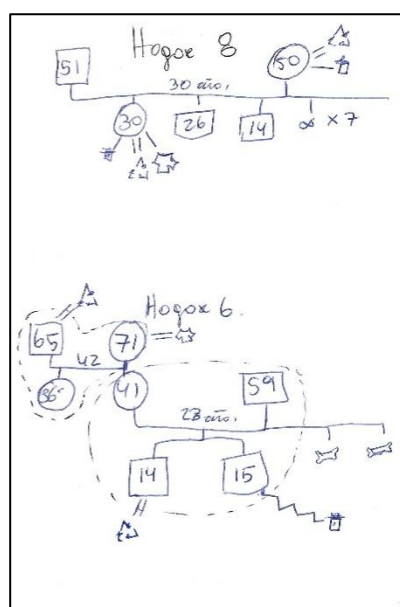 Hogar 8
51
50
30 años.
30
26
14
x 7
Hogar 6.
65
71
42
36
41
59
23 años.
14
15